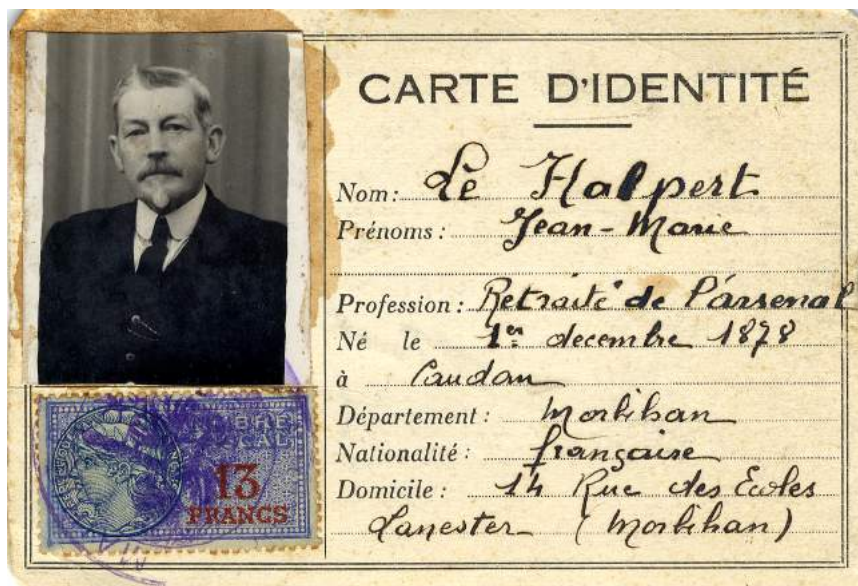 CARTE D'IDENTITÉ
Nom: Le Halpert
Prénoms: Jean-Marie
Profession: Retraité de l'arsenal
Né le 1er decembre 1878
à Caudan
Département: Morbihan
Nationalité: française
Domicile: 14 Rue des Ecoles
Lanester (Morbihan)
13
FRANCS